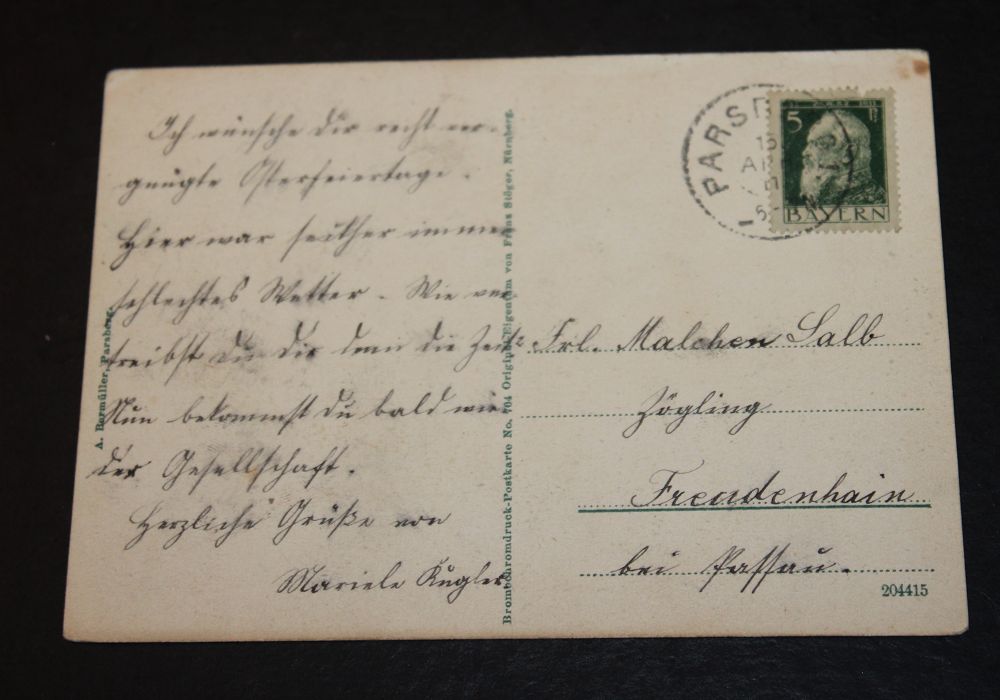 Ich wünsche Dir recht ver-
gnügte Osterfeiertage.
Hier war seither immer
schlechtes Wetter. Wie ver-
treibst Du Dir denn die Zeit?
Nun bekommst Du bald wie-
der Gesellschaft.
Herzliche Grüße von
Mariele Kugler
A. Bermüller, Parsberg.
Bromochromdruck-Postkarte No. 704 Original-Eigentum von Franz Stöger, Nürnberg.
PARSB
5 Pf
BAYERN
Frl. Malchen Salb
Zögling
Freudenhain
bei Passau.
204415